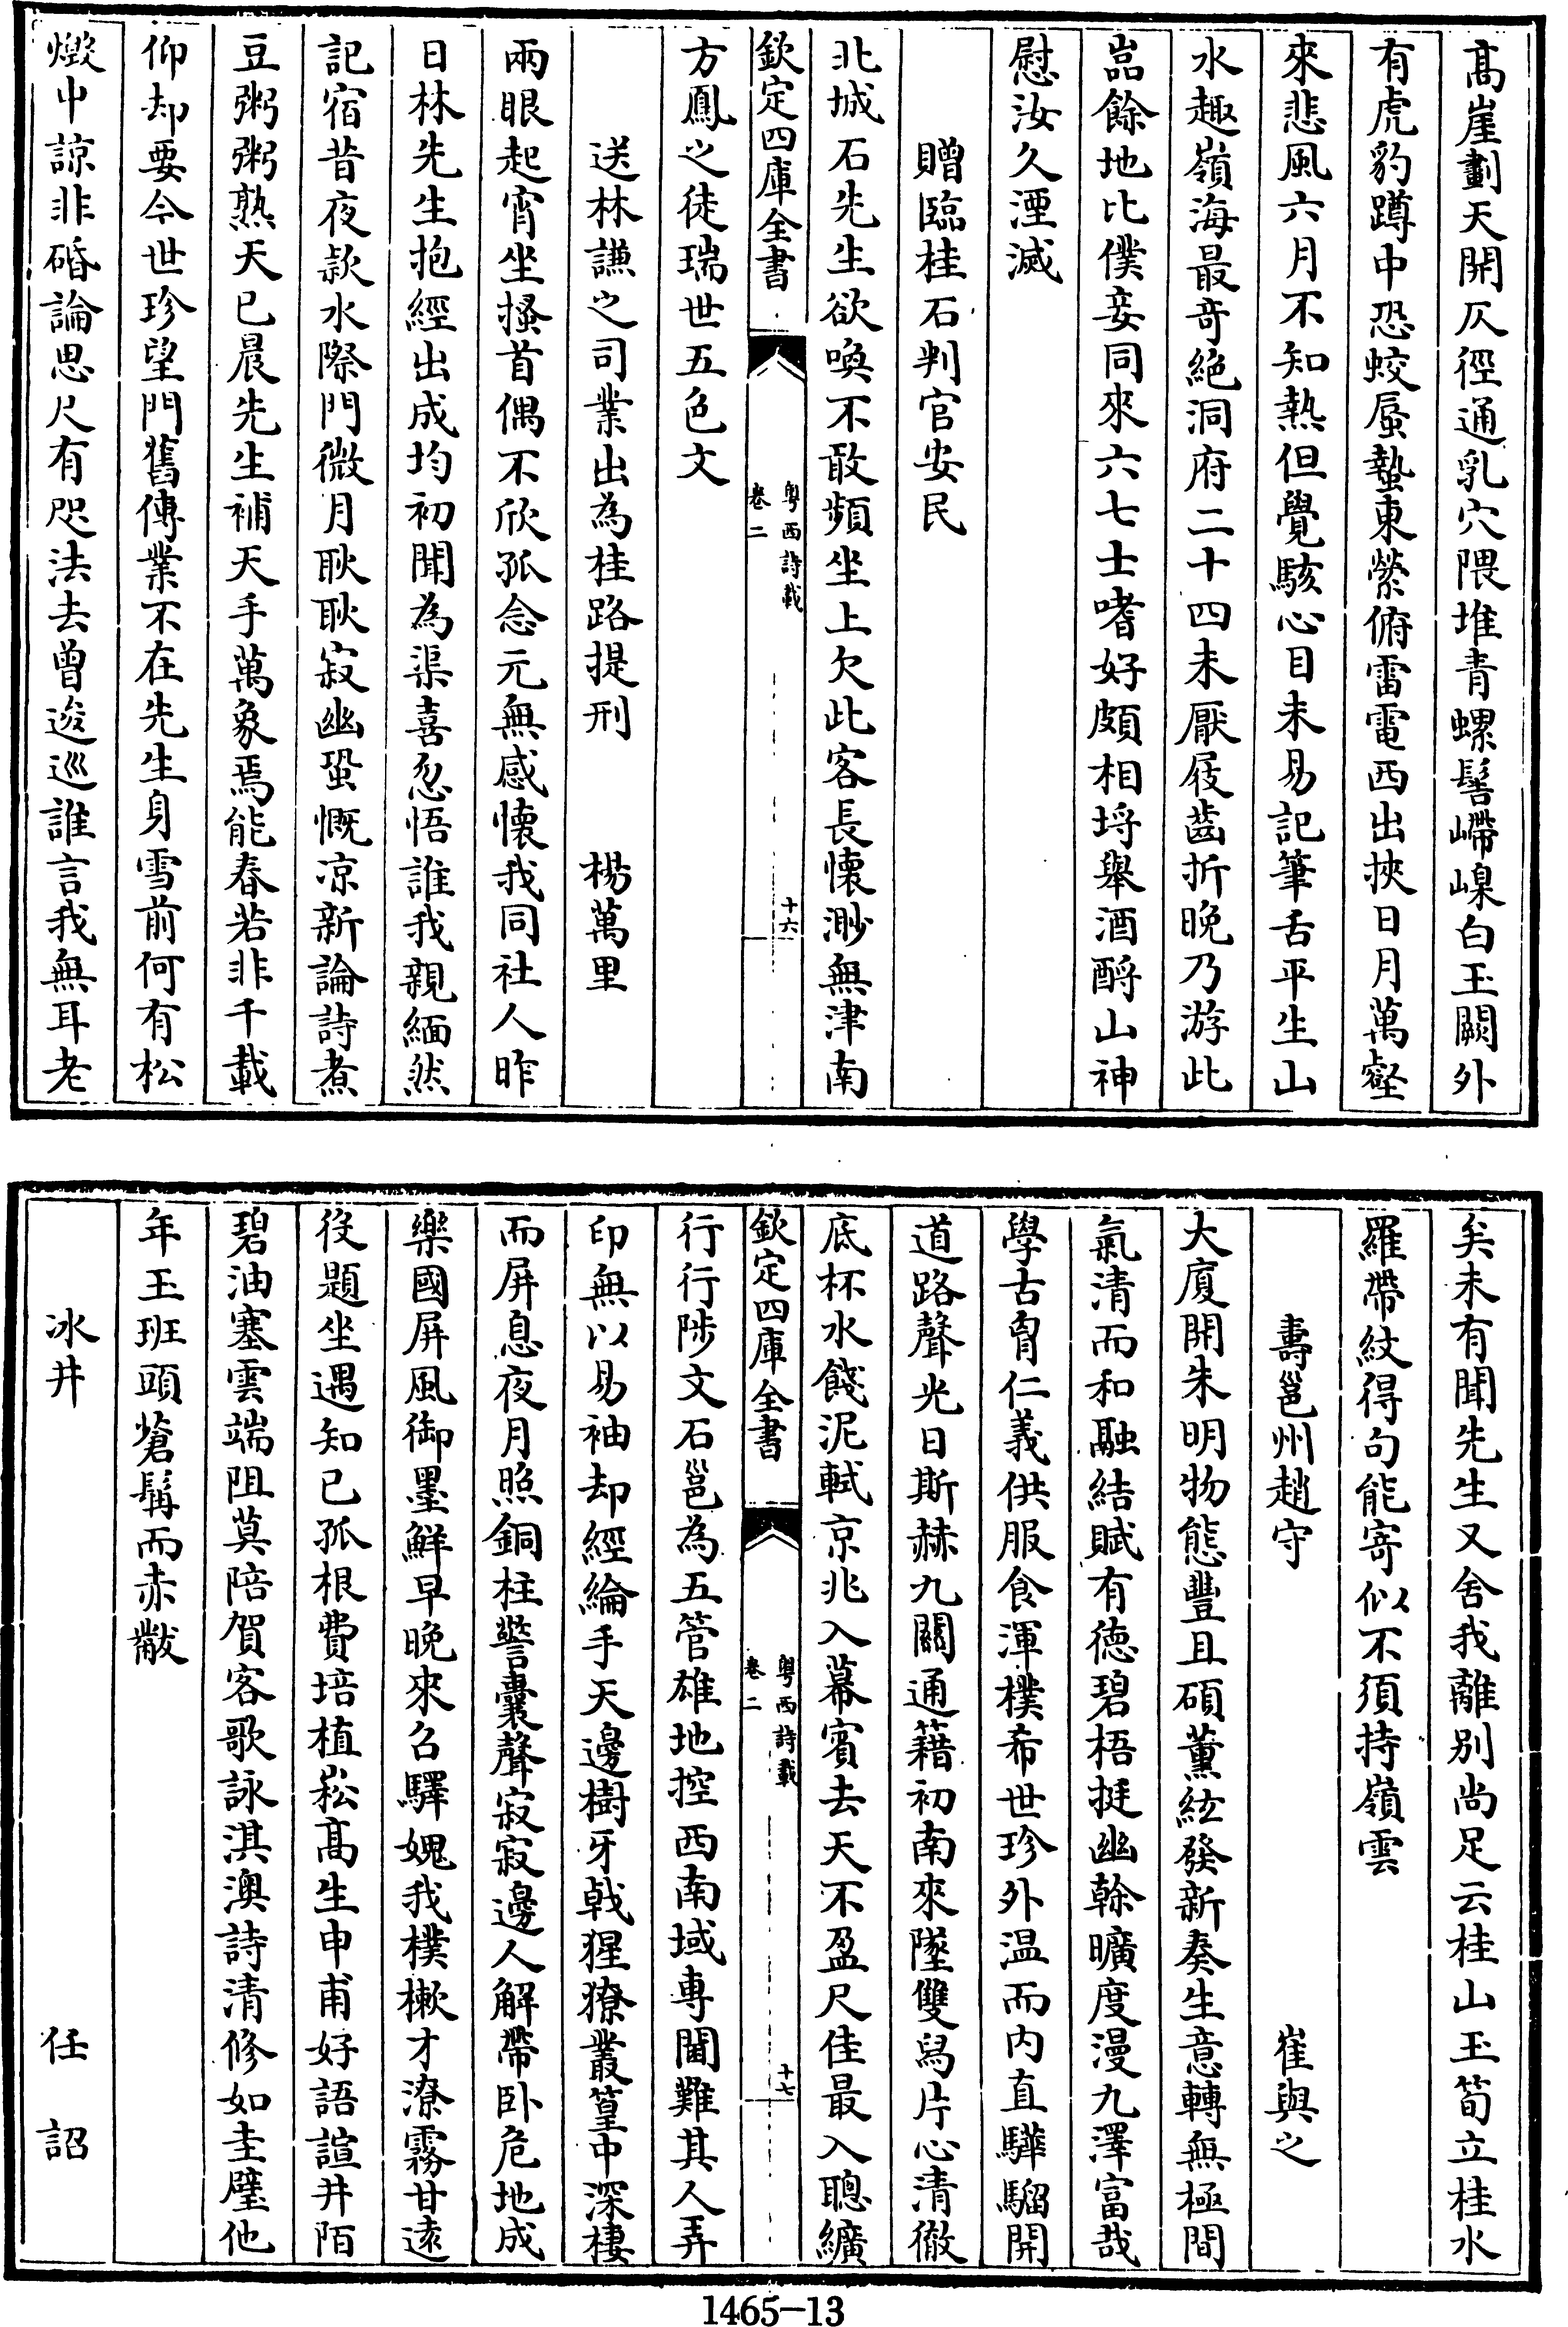 髙崖劃天開仄徑通乳穴隈堆青螺髻嶂嵲白玉闕外
有虎豹蹲中恐蛟蜃蟄東縈俯雷電西出挾日月萬壑
來悲風六月不知熱但覺駭心目未易記筆舌平生山
水趣嶺海最竒絶洞府二十四未厭屐齒折晚乃游此
嵓餘地比僕妾同來六七士嗜好頗相埒舉酒酹山神
慰汝久湮滅
贈臨桂石判官安民
北城石先生欲喚不敢頻坐上欠此客長懷渺無津南
欽定四庫全書
粤西詩載
卷二
十六
方鳳之徒瑞世五色文
送林謙之司業出為桂路提刑
楊萬里
兩眼起宵坐搔首偶不欣孤念元無感懷我同社人昨
日林先生抱經出成均初聞為渠喜忽悟誰我親緬然
記宿昔夜款水際門微月耿耿寂幽蛩慨凉新論詩煮
豆粥粥熟天已晨先生補天手萬象焉能春若非千載
仰却要今世珍望門舊傳業不在先生身雪前何有松
燬中諒非碈論思尺有咫法去曾逡巡誰言我無耳老
矣未有聞先生又舍我離别尚足云桂山玉筍立桂水
羅帶紋得句能寄似不須持嶺雲
夀邕州趙守
崔與之
大厦開朱明物態豐且碩薰絃發新奏生意轉無極間
氣清而和融結賦有徳碧梧挺幽榦曠度漫九澤富哉
學古胷仁義供服食渾樸希世珍外温而内直驊騮開
道路聲光日斯赫九關通籍初南來墜雙舄片心清徹
底杯水餞泥軾京兆入幕賓去天不盈尺佳最入聰纊
欽定四庫全書
粤西詩載
卷二
十七
行行陟文石邕為五管雄地控西南域専閫難其人弄
印無以易袖却經綸手天邊樹牙㦸猩獠叢篁中深棲
而屏息夜月照銅柱警櫜聲寂寂邊人解帶卧危地成
樂國屏風御墨鮮早晚來召驛媿我樸樕才潦霧甘逺
役題坐遇知已孤根費培植崧髙生申甫好語諠井陌
碧油塞雲端阻莫陪賀客歌詠淇澳詩清修如圭璧他
年玉班頭蒼髯而赤黻
冰井
任詔
1465-13